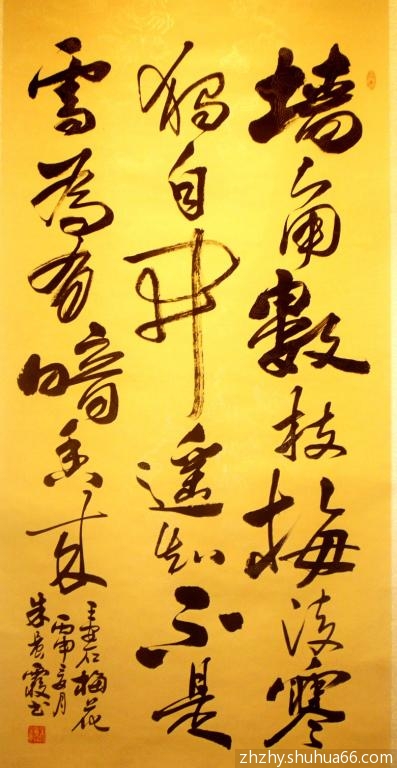 墙角數枝梅凌寒
獨自開遥知不是
雪為有暗香来
王安石梅花
丙申月
朱長霞书
zhzhy.shuhua66.com